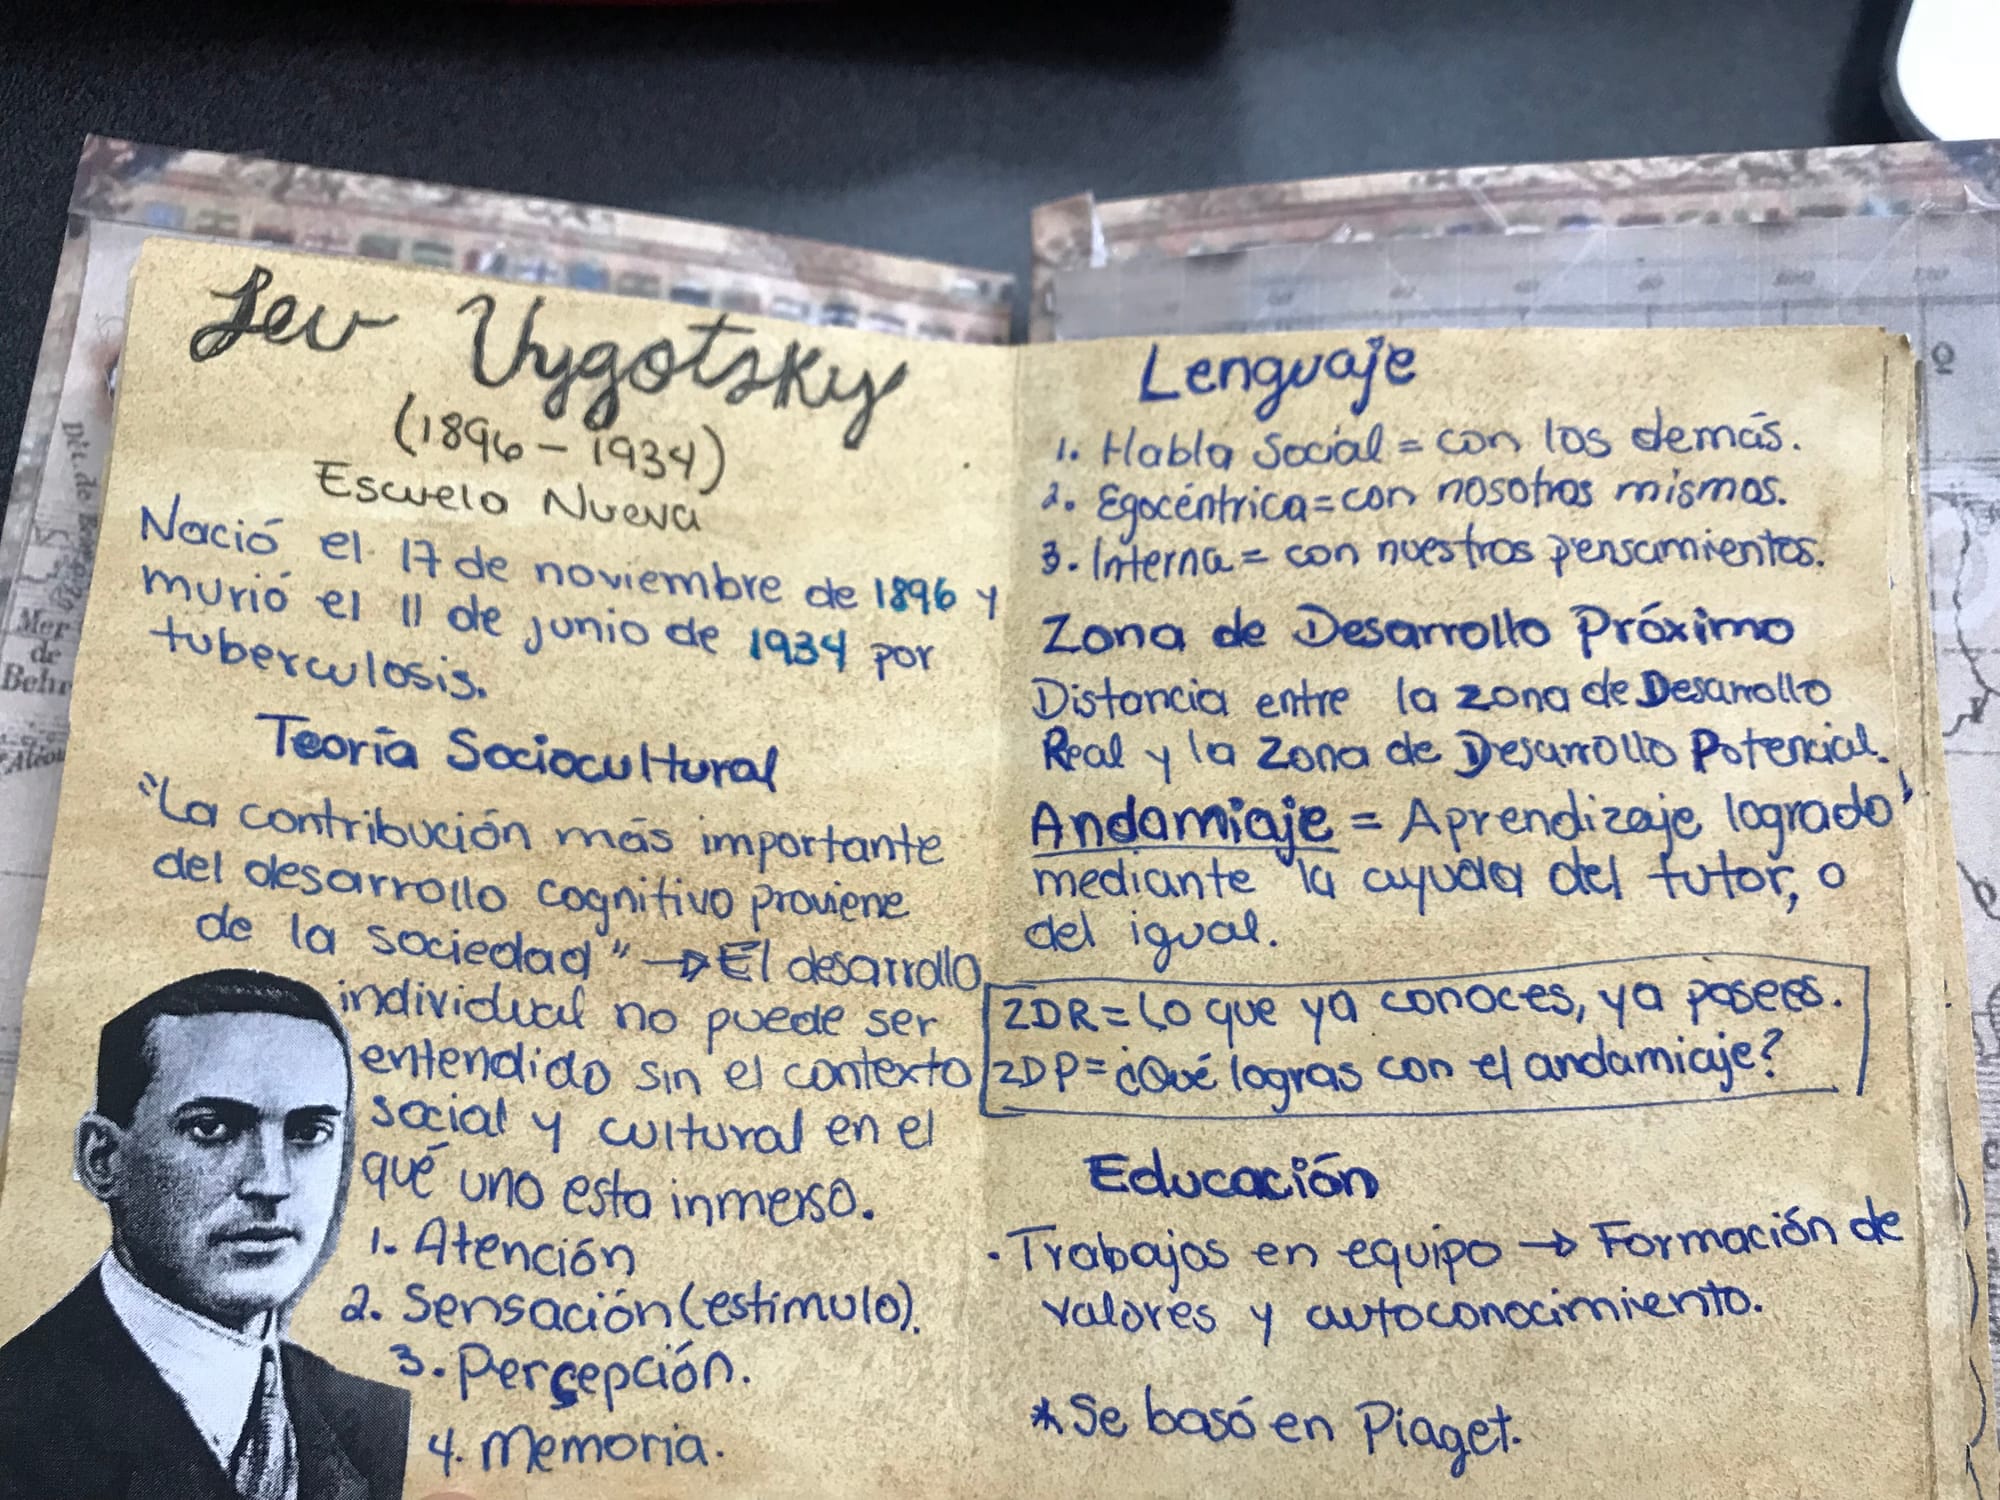 Lev Vygotsky
(1896 - 1934)
Escuela Nueva
Nació el 17 de noviembre de 1896 y
murió el 11 de junio de 1934 por
tuberculosis.
Teoría Sociocultural
"La contribución más importante
del desarrollo cognitivo proviene
de la sociedad" → El desarrollo
individual no puede ser
entendido sin el contexto
social y cultural en el
qué uno esta inmerso.
1. Atención
2. Sensación (estímulo).
3. Percepción.
4. Memoria.
Lenguaje
1. Habla Social = con los demás.
2. Egocéntrica = con nosotros mismos.
3. Interna = con nuestros pensamientos.
Zona de Desarrollo Próximo
Distancia entre la zona de Desarrollo
Real y la Zona de Desarrollo Potencial.
Andamiaje = Aprendizaje logrado
mediante la ayuda del tutor, o
del igual.
ZDR = Lo que ya conoces, ya posees.
ZDP = ¿Qué logras con el andamiaje?
Educación
· Trabajos en equipo → Formación de
valores y autoconocimiento.
* Se basó en Piaget.
Mer
de
Behr